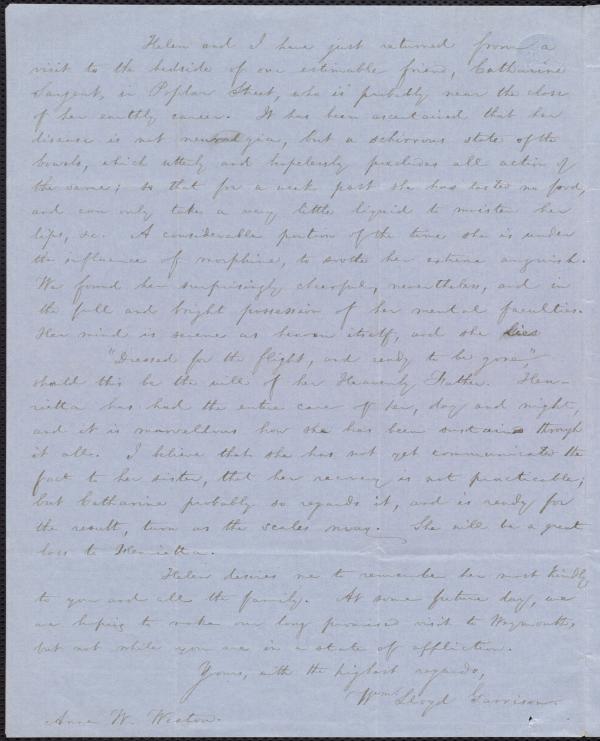 Helen and I have just returned from a
visit to the bedside of our estimable friend, Catharine
Sargent, in Poplar Street, who is probably near the close
of her earthly career. It has been ascertained that her
disease is not neuralgia, but a schirrous state of the
bowels, which utterly and hopelessly precludes all action of
the same; so that for a week past she has tasted no food,
and can only take a very little liquid to moisten her
lips, &c. A considerable portion of the time she is under
the influence of morphine, to soothe her extreme anguish.
We found her surprisingly cheerful, nevertheless, and in
the full and bright possession of her mental faculties.
Her mind is serene as heaven itself, and she lies
"Dressed for the flight, and ready to be gone,"
should this be the will of her Heavenly Father. Hen-
rietta has had the entire care of her, day and night,
and it is marvellous how she has been sustained through
it all. I believe that she has not yet communicated the
fact to her sister, that her recovery is not practicable;
but Catharine probably so regards it, and is ready for
the result, turn as the scales may. She will be a great
loss to Henrietta.
Helen desires me to remember her most kindly
to you and all the family. At some future day, we
are hoping to make our long promised visit to Weymouth,
but not while you are in a state of affliction.
Yours, with the highest regards,
Wm. Lloyd Garrison.
Anne W. Weston.